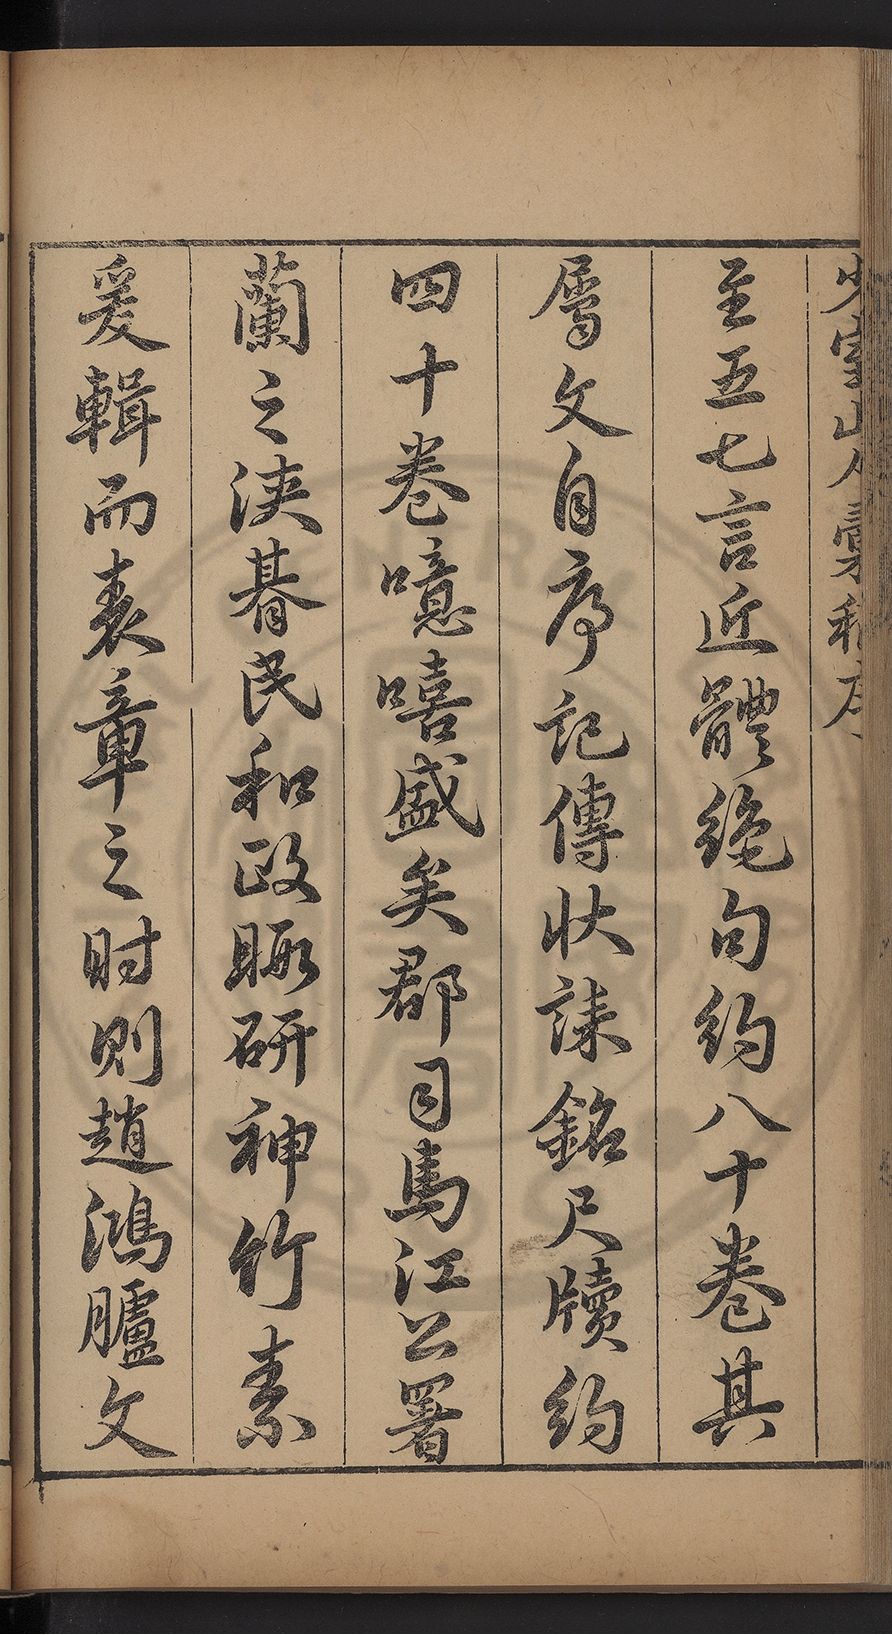 少室山人彙稿序
至五七言近體絶句約八十卷其
屬文自序記傳狀誄銘尺牘約
四十卷噫嘻盛矣郡司馬江公署
蘭之浹朞民和政暇研神竹素
爰輯而表章之时则趙鴻臚文